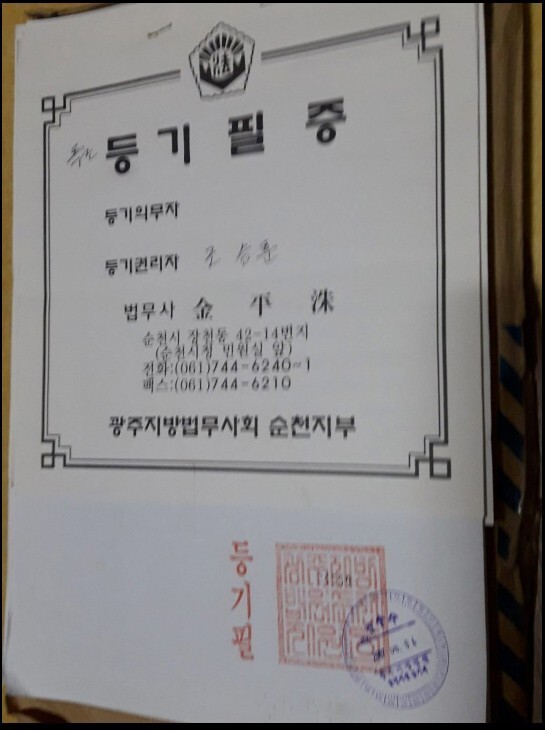 法
등기필증
등기의무자
등기권리자 조승훈
법무사 金平洙
순천시 장천동 42-14번지
(순천시청 민원실 앞)
전화:(061)744-6240~1
팩스:(061)744-6210
광주지방법무사회 순천지부
등기필